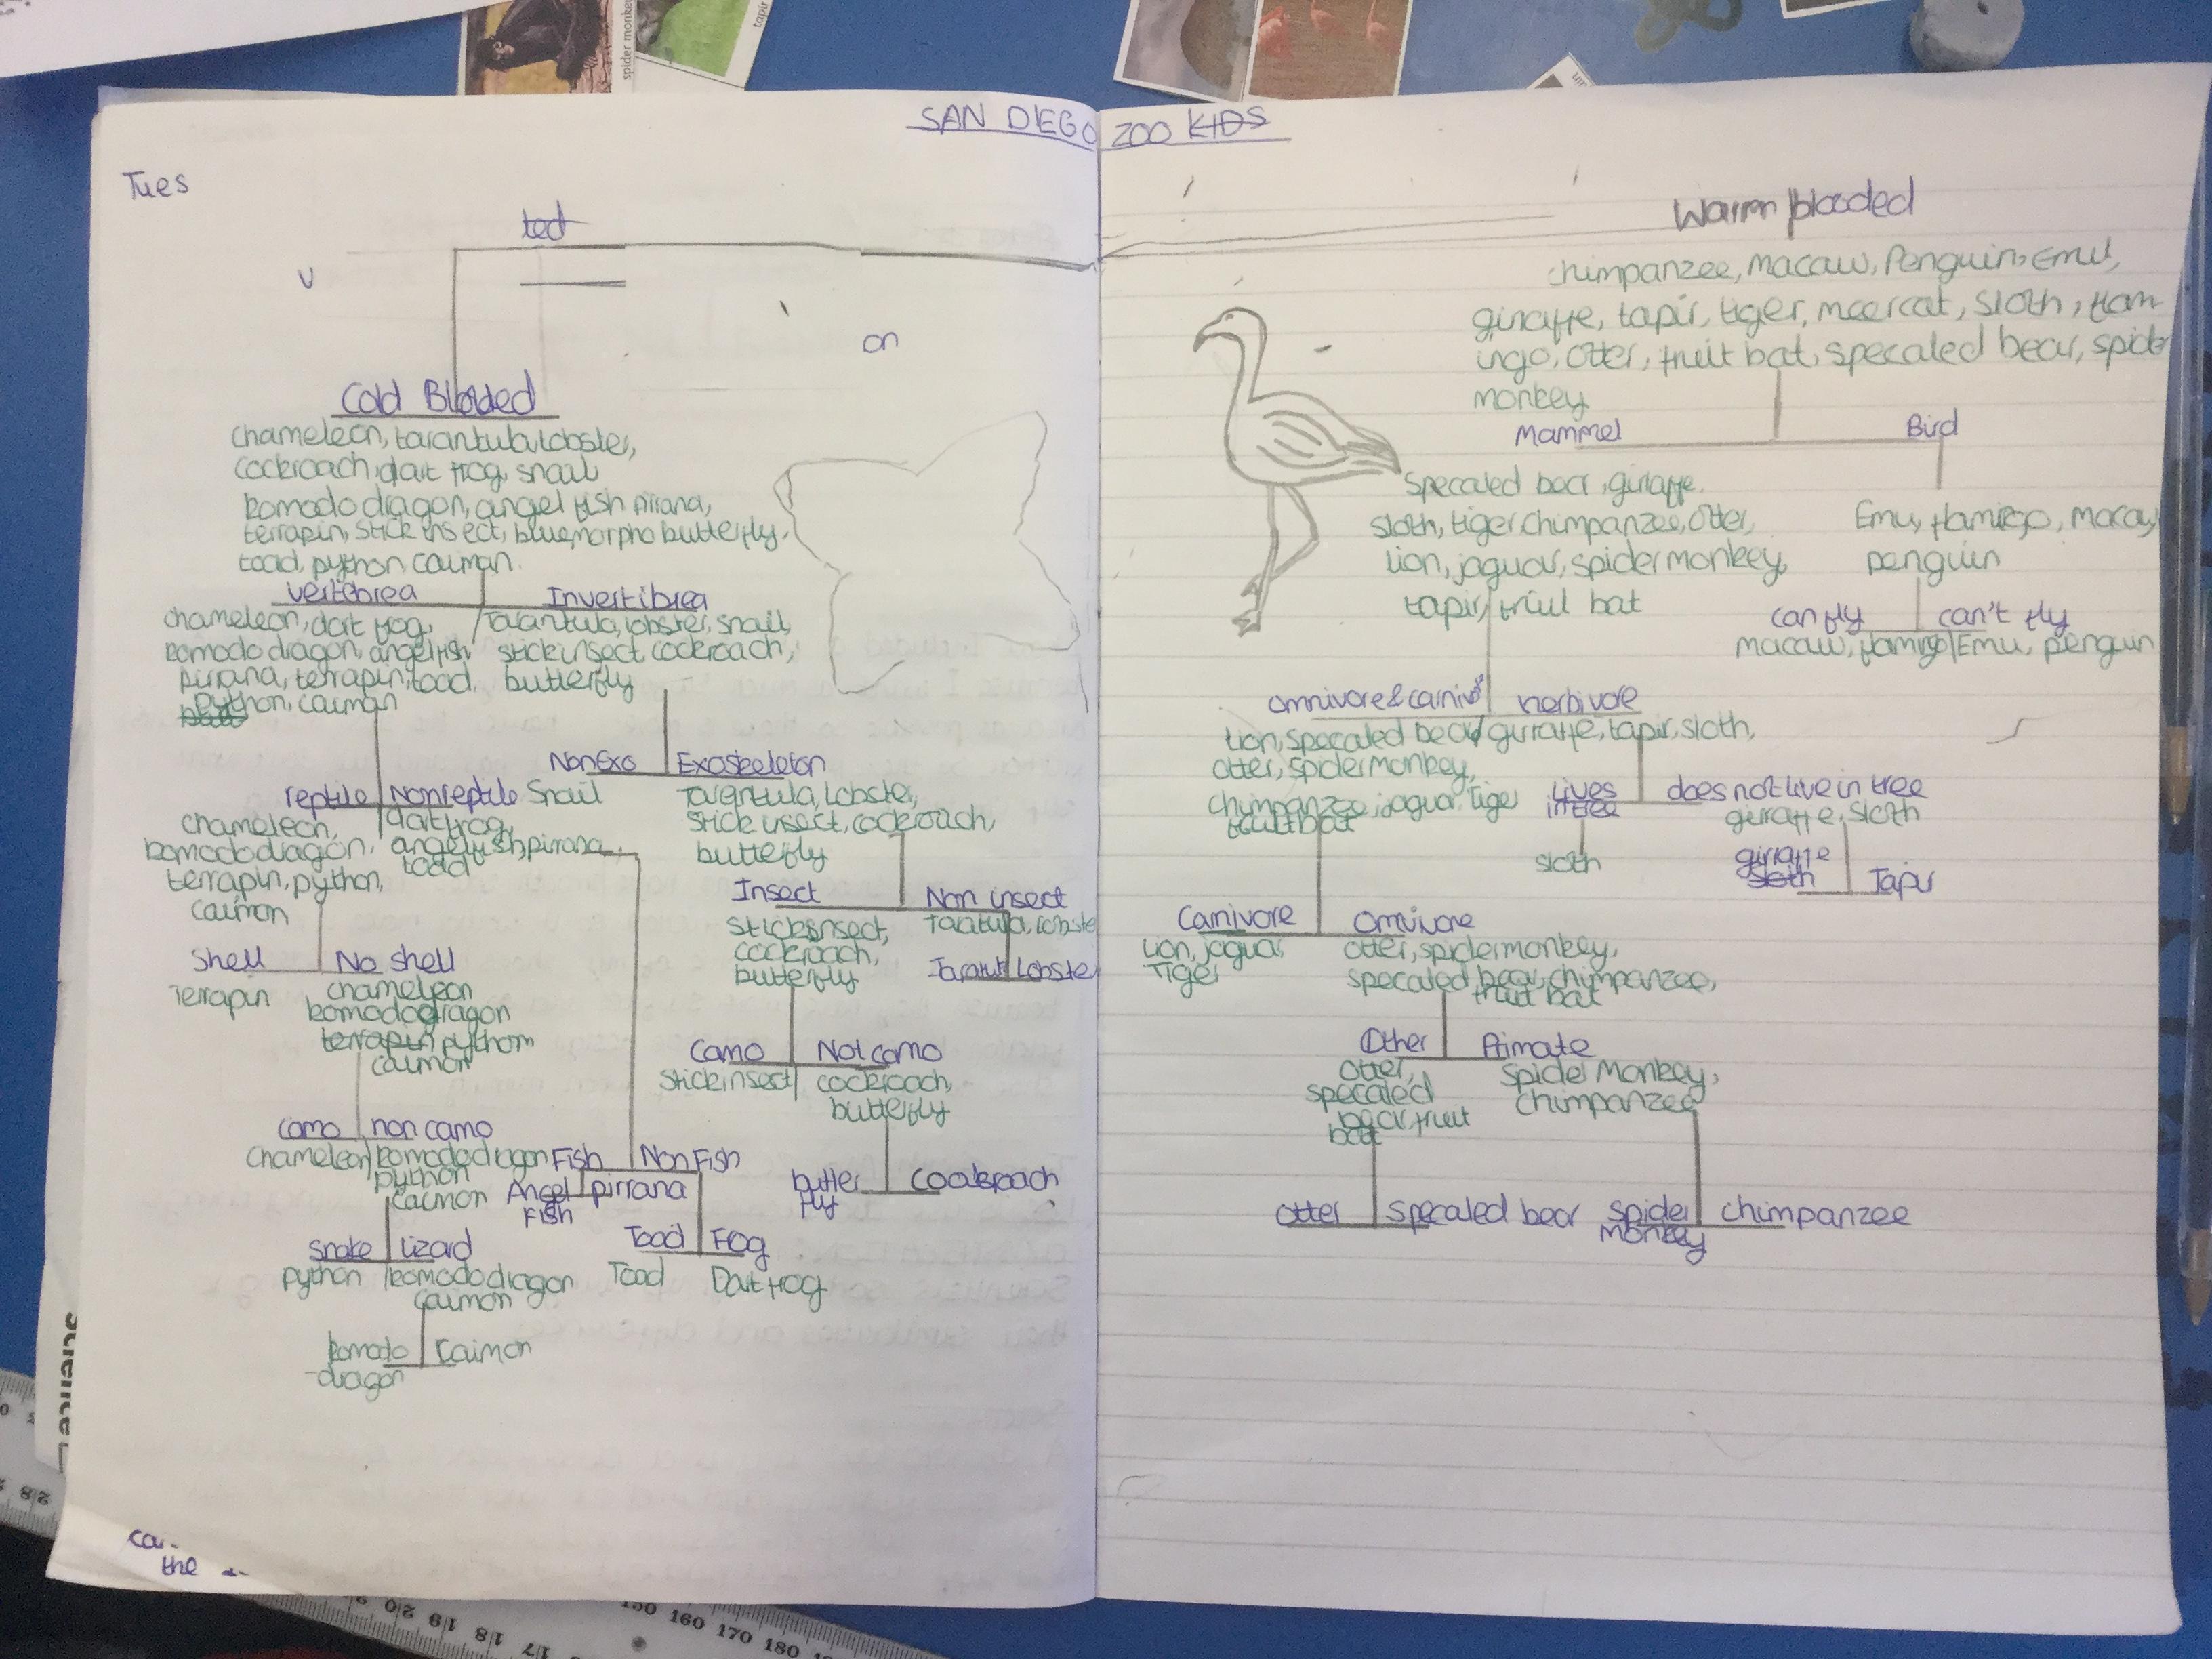 spider monkey
tapir
SAN DIEGO ZOO KIDS
Tues
ted
on
Cold Blooded
chameleon, tarantula, lobster,
cockroach, dart frog, snail
komodo dragon, angel fish pirrana,
terrapin, stick insect, bluemorpho butterfly,
toad, python caiman.
vertebrea Invertibrea
chameleon, dart frog,
komodo dragon, angelfish
pirrana, terrapin, toad,
python, caiman
Tarantula, lobster, snail,
stick insect cockroach,
butterfly
Non Exo Exoskeleton
Snail
Tarantula, Lobster,
Stick insect, cockroach,
butterfly
reptile Nonreptile
chameleon,
komodo dragon,
terrapin, python,
caimon
dart frog,
angelfish, pirrana
toad
Insect Non insect
Stick insect,
cockroach,
butterfly
Taratula, lobste
Taratul Lobster
Shell No shell
Terrapin
chameleon
komodo dragon
terrapin python
caimon
Camo Not camo
Stick insect
cockroach,
butterfly
butter
fly
Cockroach
Camo non camo
chameleon
komodo dragon
python
caimon
Fish Non Fish
Angel
Fish
pirrana
Toad Fog
Toad Dart frog
snake lizard
python
komodo dragon
caimon
komodo
dragon
Caimon
the
Warm blooded
chimpanzee, Macaw, Penguin, Emu,
giraffe, tapir, tiger, meercat, sloth, flam-
ingo, otter, fruit bat, specaled bear, spider
monkey
Mammel Bird
Specaled bear, giraffe,
sloth, tiger, chimpanzee, otter,
lion, jaguar, spider monkey,
tapir, friut bat
Emu, flamingo, macaw,
penguin
can fly can't fly
macaw, flamigo Emu, penguin
omnivore & carnivor herbivore
Lion, specaled bear
otter, spider monkey,
chimpanzee, jaguar, Tiger
fruit bat
girraffe, tapir, sloth,
Lives
in tree
does not live in tree
giraffe, sloth
sloth
girraffe
sloth
Tapir
Carnivore Omnivore
Lion, jaguar
Tiger
otter, spider monkey,
specaled bear, chimpanzee,
fruit bat
Other Primate
otter,
specaled
bear, fruit
bat
Spider Monkey,
chimpanzee
otter specaled bear
spider
monkey
chimpanzee
28
20 19 18 17
150 160 170 180